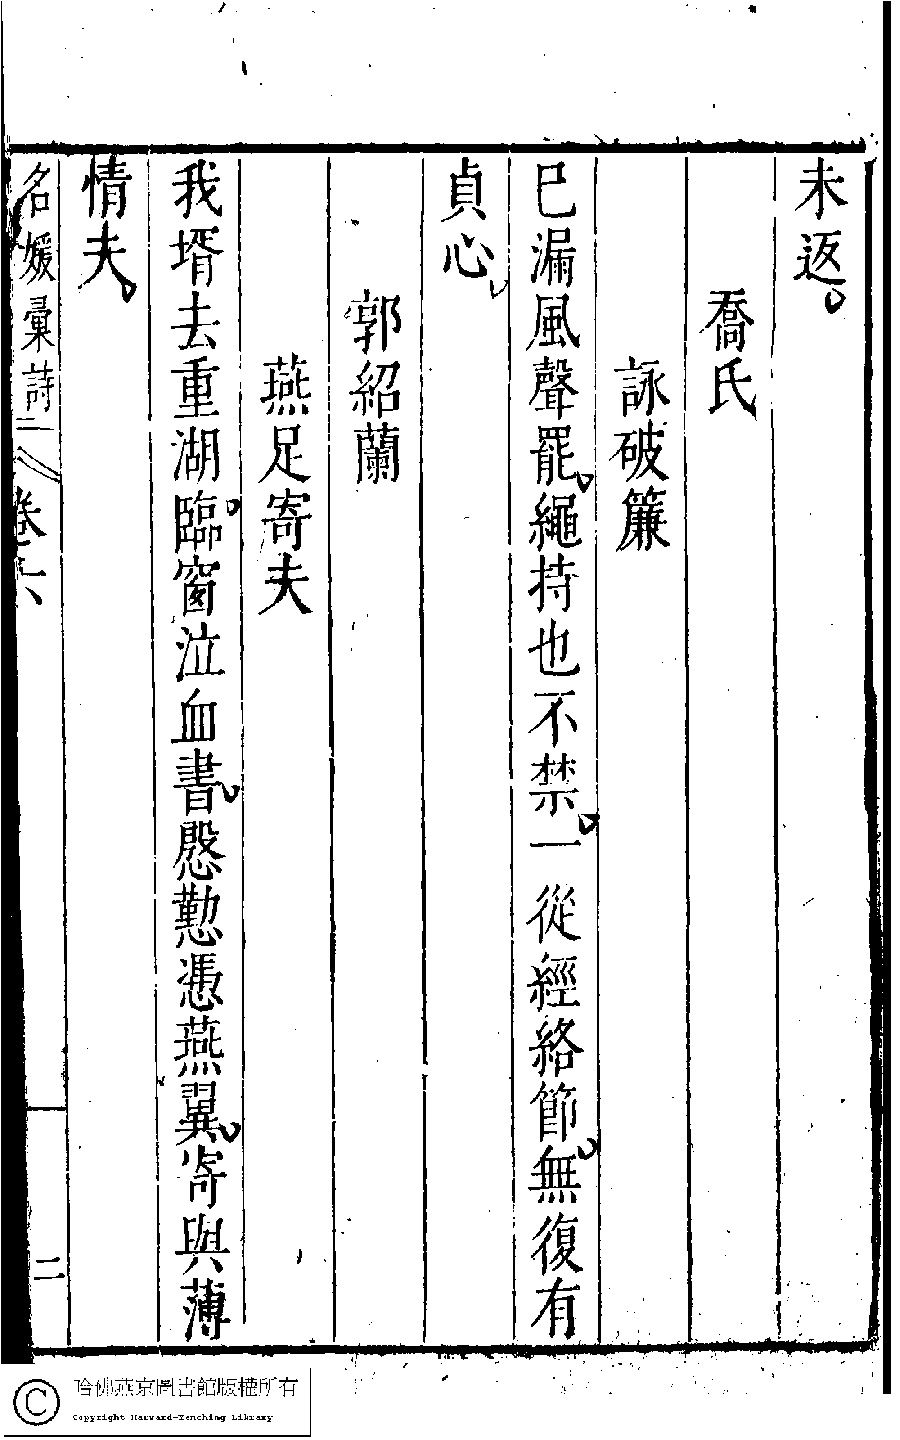 未返
喬氏
詠破簾
已漏風聲罷繩持也不禁一從經絡節無復有
貞心
郭紹蘭
燕足寄夫
我壻去重湖臨窗泣血書慇懃憑燕翼寄與薄
情夫
名媛彙詩 卷六 二
哈佛燕京圖書館版權所有
Copyright Harvard-Yenching Library